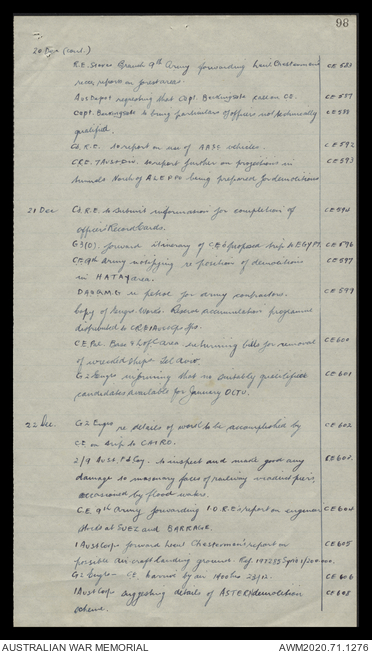 98
20 Dec (cont.)
R.E. Stores Branch 9th Army forwarding Lieut Chesterman's CE 583
recce reports on forest areas.
Aust Depot regarding that Capt. see on CE. CE 587
Capt. to bring particulars of officers not technically CE 588
qualified.
Cs. R.E. to report on use of AASC vehicles. CE 592
CRE. 7 Aust Div. to report further on projections in CE 593
tunnels North of ALEPPO being prepared for demolitions
21 Dec Cs. R.E. to submit information for completion of CE 594
officers Record Cards.
GS(O). forward itinerary of CE's proposed trip to EGYPT. CE 596
CE 9th Army notifying re position of demolitions CE 597
in HATAY area.
DAQMG re petrol for army contractors. CE 599
Copy of Engrs. Works. Reserve accumulation programme
distributed to CRE's
CE Pal. Base & LofC area returning bills for removal CE 600
of wrecked ships Tel Aviv.
G2 Engrs informing that no suitably qualified CE 601
candidates available for January OCTU.
22 Dec. G2 Engrs re details of work to be accomplished by CE 602
CE on trip to CAIRO.
2/9 Aust. Fd Coy. to inspect and make good any CE 603
damage to masonry faces of railway viaduct piers,
occasioned by flood water.
CE 9th Army forwarding I.O.R.E's report on engineer CE 604
at SUEZ and BARRAGE.
1 Aust Corps forward Lieut Chesterman's report on CE 605
possible aircraft landing grounds. Ref. 197255 Syria 1/200000.
G2 Engrs - CE by air 1400 hrs 23/12. CE 606
1 Aust Corps suggesting details of ASTERI demolition CE 608
scheme.
AUSTRALIAN WAR MEMORIAL
AWM2020.71.1276